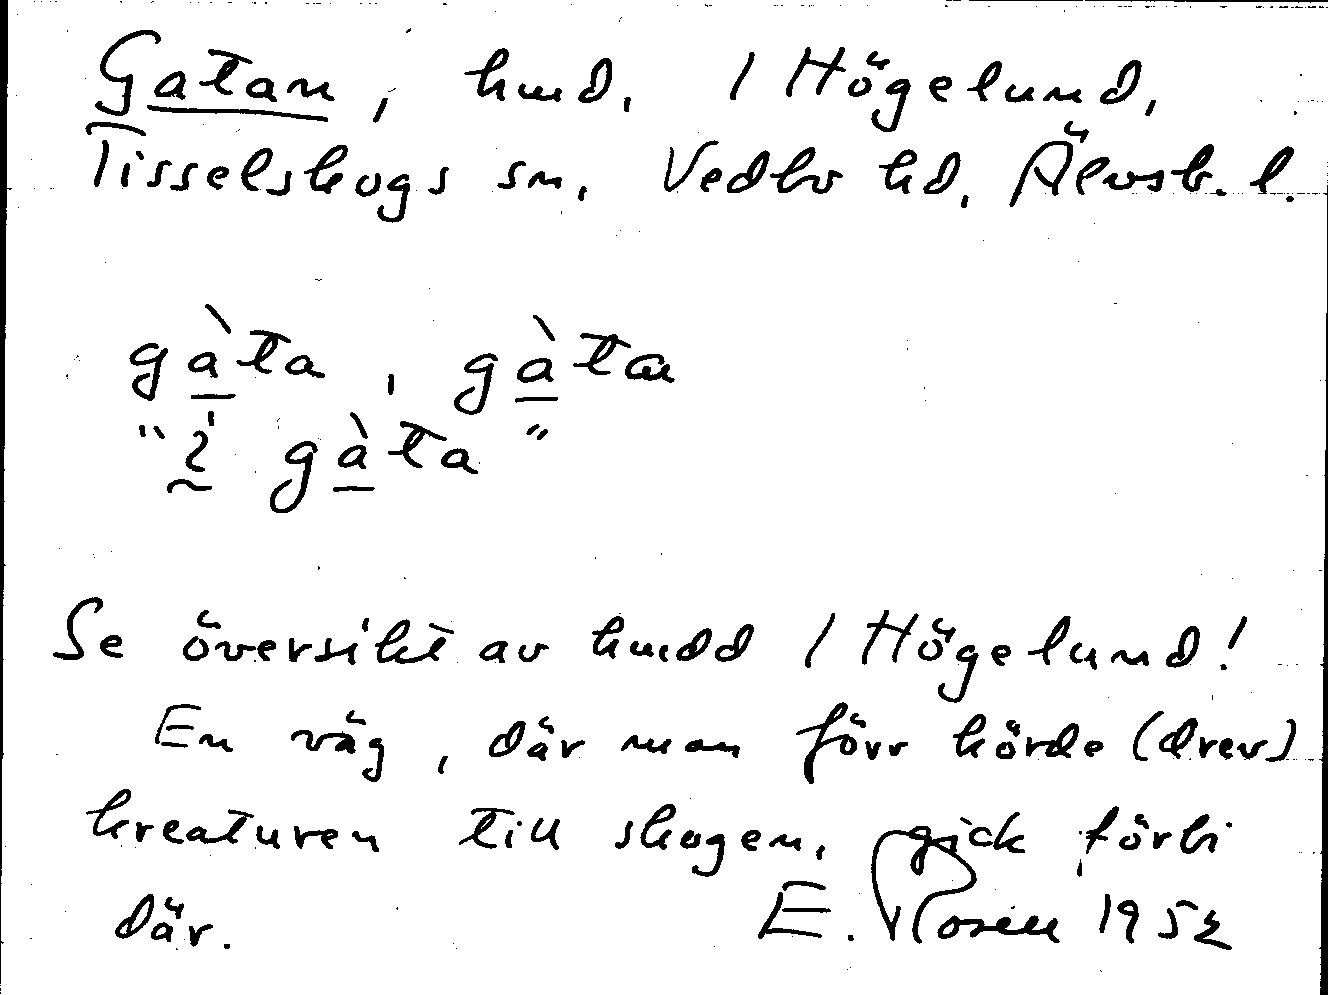 Gatan, hmd. 1 Högelund,
Tisselskogs sn, Vedbo hd, Älvsb. l.
gàta, gàtan
"i gàta"
Se översikt av hmdd 1 Högelund!
En väg, där man förr körde (drev)
kreaturen till skogen, gick förbi
där. E. Rosell 1952